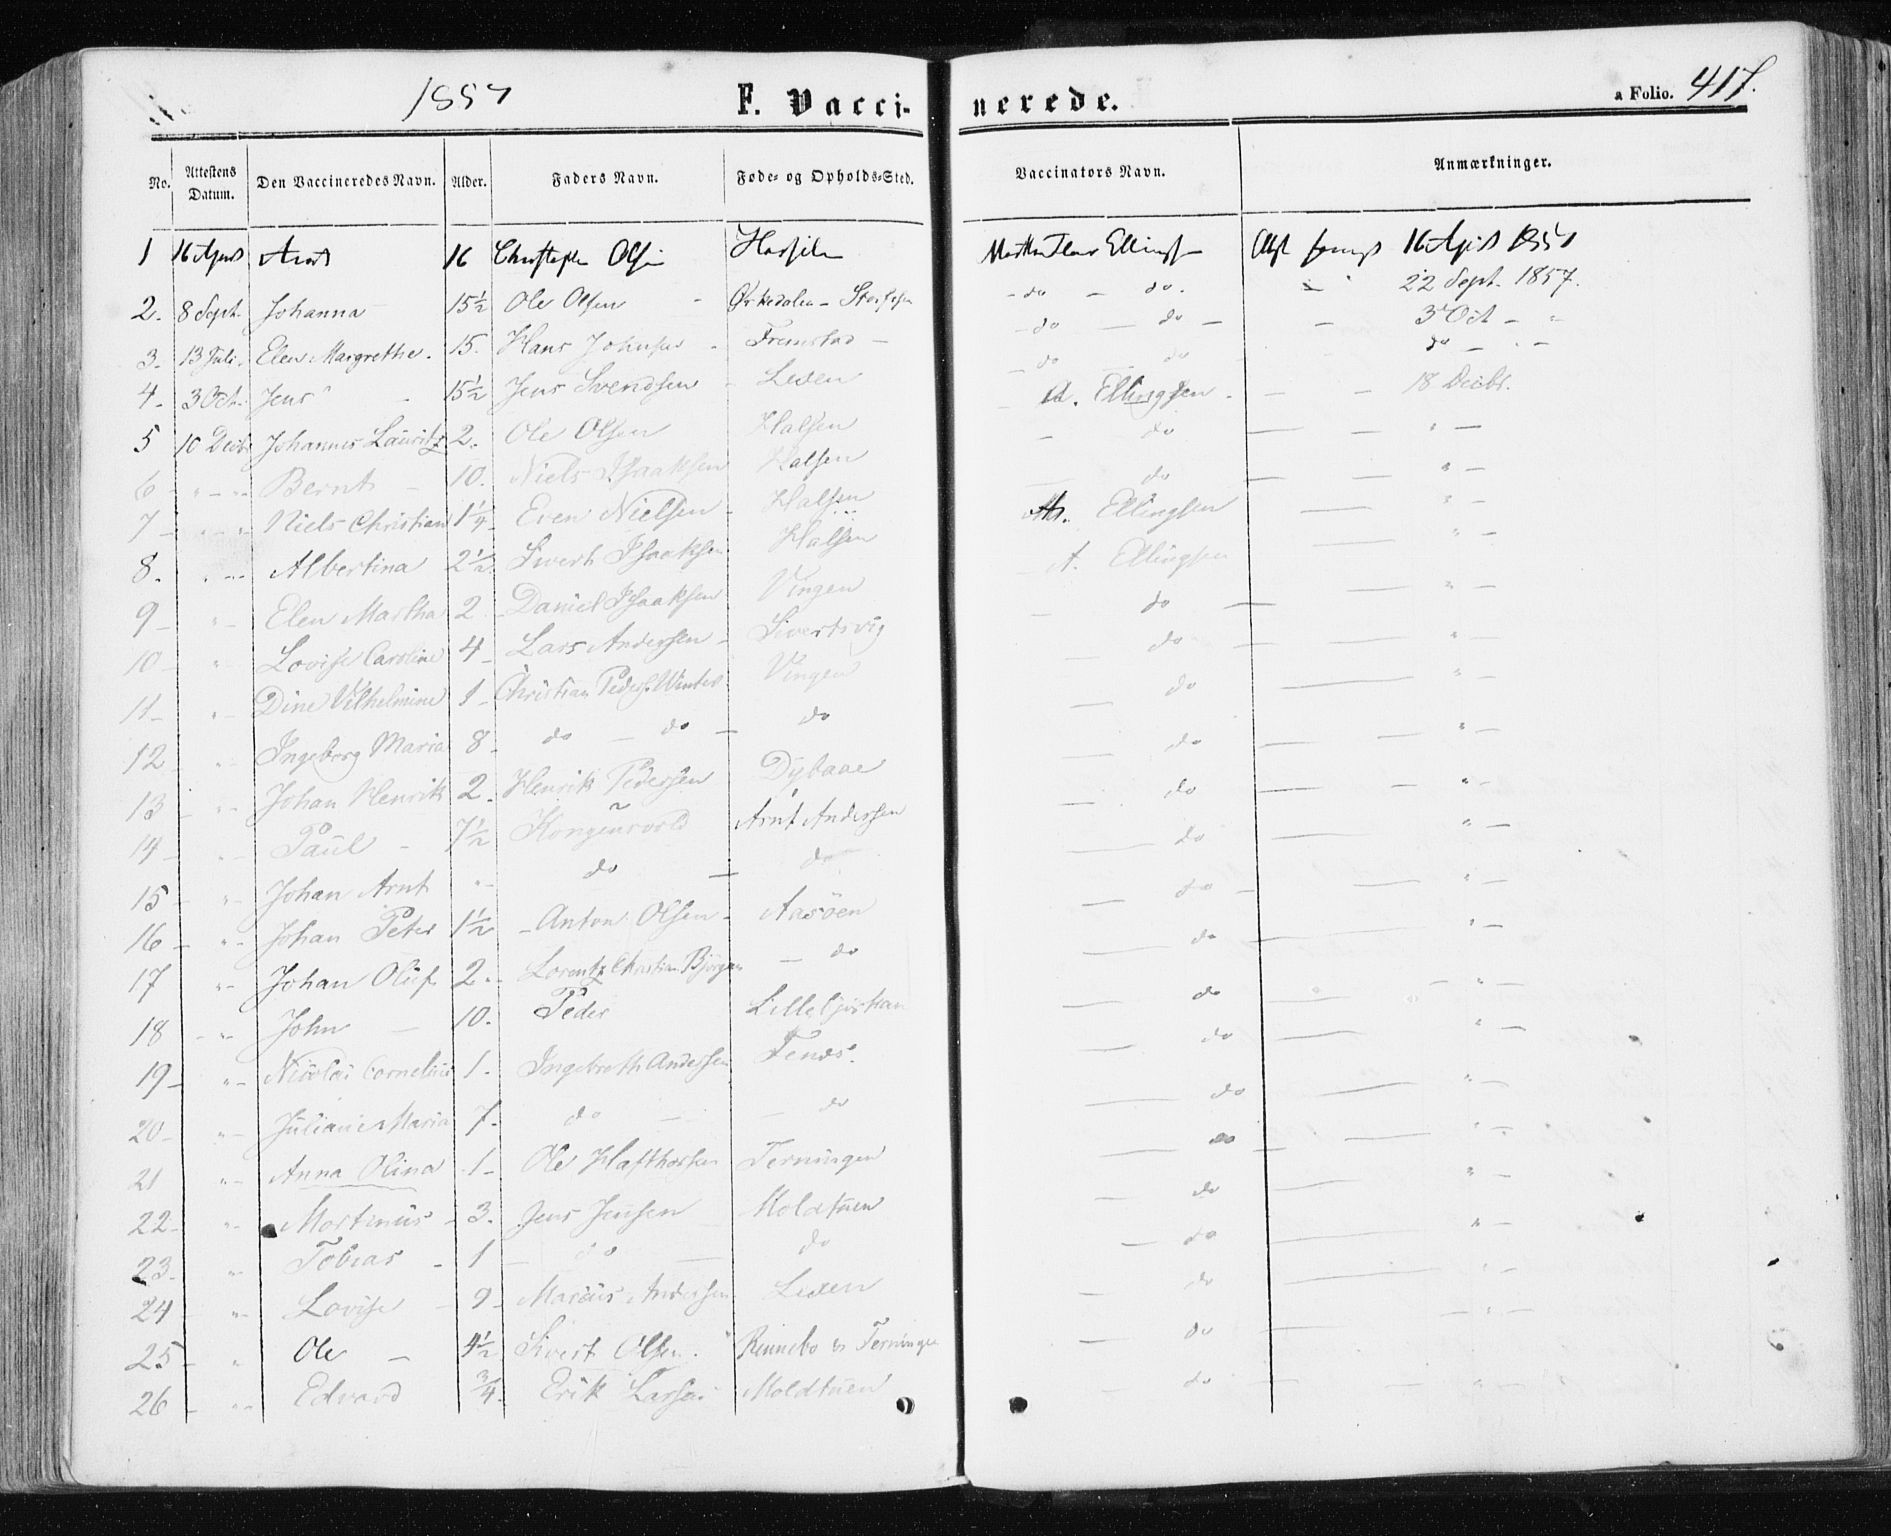 1857 F. Vaccinerede. a Folio. 417.
No. Attestens Datum. Den Vaccineredes Navn. Alder. Faders Navn. Føde- og Opholds-Sted. Vaccinators Navn. Anmærkninger.
1 16 Arnt 16 Olsen 16 1857
2. 8 Sept. Johanna 15½ Ole Olsen Ørkedalen - do - do. 22 Sept. 1857.
3. 13 Juli. Elen Margrethe. 15. Hans Johnsen Fremstad - do - do - 3 Oct - "
4 - 3 Oct. Jens 15½ Jens Svendsen Leden do do do - " -
5 10 Decbr Johannes Lauritz 2. Ole Olsen Halsen A. Ellingsen - - - 18 Decbr.
6 - " - " - Bernt 10. Niels Isaaksen Halsen - do - - " -
7 - " " Niels Christian 1¼ Even Nielsen Halsen - do - - " -
8. " - Albertina 2½ Sivert Isaaksen Halsen Ellingsen - - " -
9 - " - Elen Martha 2 Daniel Isaaksen Vingen A. Ellingsen - - " -
10 - " - Lovise Caroline 4 - Lars Andersen - Sivertsvig - do - - " -
11 - " - Dine Vilhelmine 1 - Christian Peders. Winter Vingen - do - - " -
12 " - Ingeborg Maria 8 - do - do - do - do - - " -
13 - " - Johan Henrik 2. Henrik Pedersen - do - - " -
14 - " - Paul - 7½ Kongensvold Arnt Andersen - do - - " -
15 - " - Johan Arnt " - do - do - do - - " -
16 - " - Johan Peter 1½ - Anton Olsen - Aasöen - do - - " -
17 " - Johan Oluf 2. - Lorentz Christian - do - do - - " -
18 - " - John - 10. Peder - do - - " -
19 - " - Nicolai Cornelius 1. Ingebreth Andersen - do - - " -
20 - " - Juliane Maria 7. do - - do - do - - " -
21 " - Anna Olina 1 - Ole Terningen - do - - " -
22 - " - Martinus - 3. Jens Jensen Moldtuen - do - - " -
23 - " - Tobias - 1 - do - do - do - - " -
24 " - Lovise - 9 - Marius Andersen Leden - do - - " -
25 - " Ole - 4½ Sivert Olsen. Rennebo & Terningen - do - - " -
26 - " - Edvard ¾. Erik Larsen Moldtuen - do - - " -